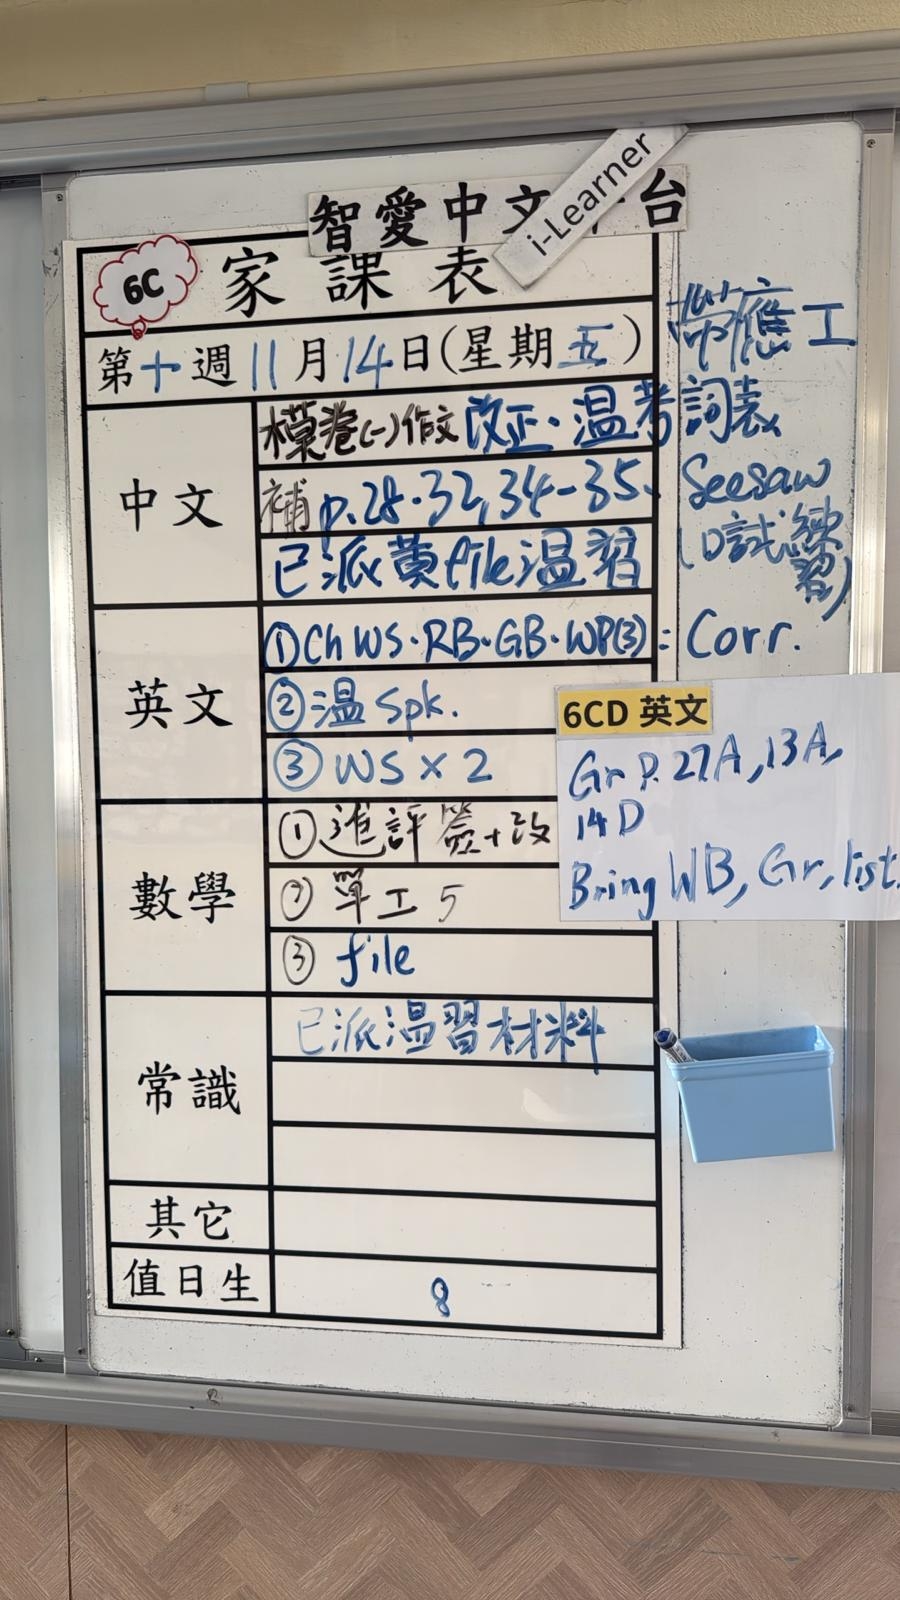 智愛中文台
i-Learner
6C 家課表
第十週11月14日(星期五)
帶應工
中文
模卷(一)作文 改正、温考詞表
補 p.28-32,34-35、
Seesaw
(口試練習)
已派黄file温習
英文
①Ch WS·RB·GB·WP(3) : Corr.
②温 spk.
③ WS × 2
6CD 英文
Gr P. 27A, 13A,
14D
Bring WB, Gr, list
數學
①進評簽+改
② 單工 5
③ file
常識
已派温習材料
其它
值日生
8